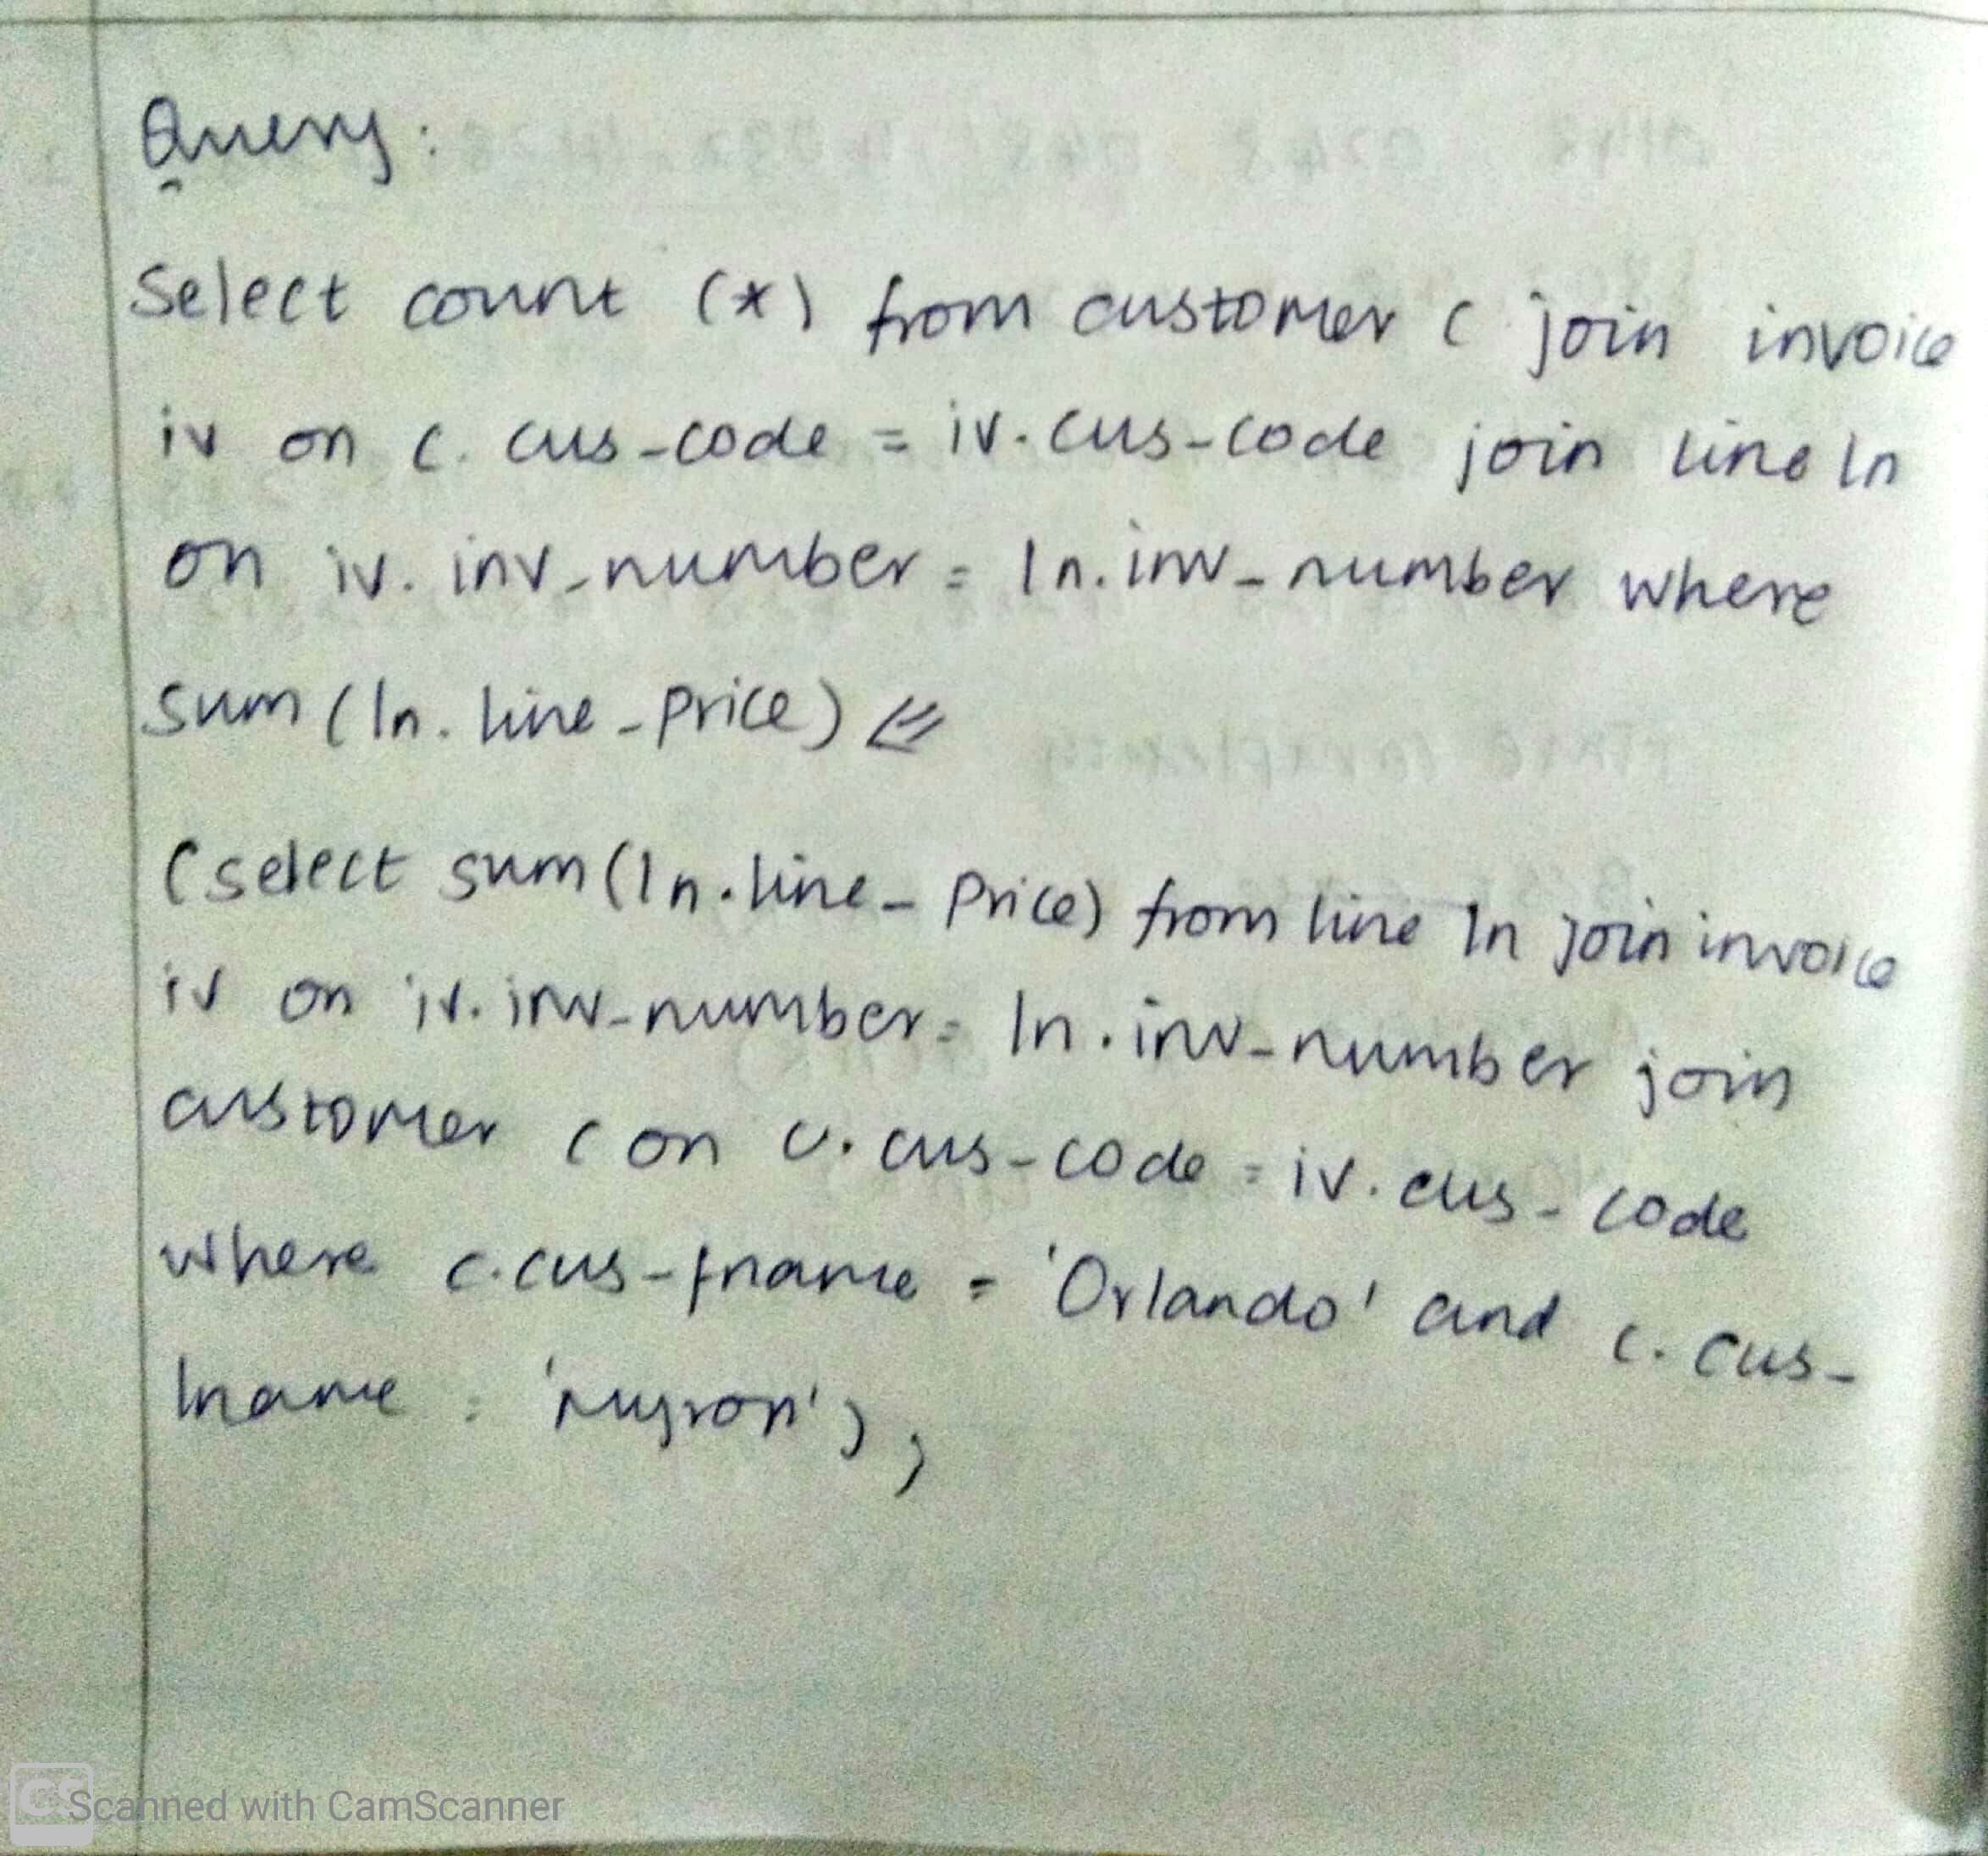 Query:
Select count (*) from customer c join invoice
iv on c. cus-code = iv. cus-code join line ln
on iv. inv-number = ln. inv-number where
sum (ln. line-price) <=
(select sum (ln. line-Price) from line ln join invoice
iv on iv. inv-number = ln. inv-number join
customer c on c. cus-code = iv. cus-code
where c. cus-fname = 'Orlando' and c. cus-
lname = 'Myron');
CS Scanned with CamScanner